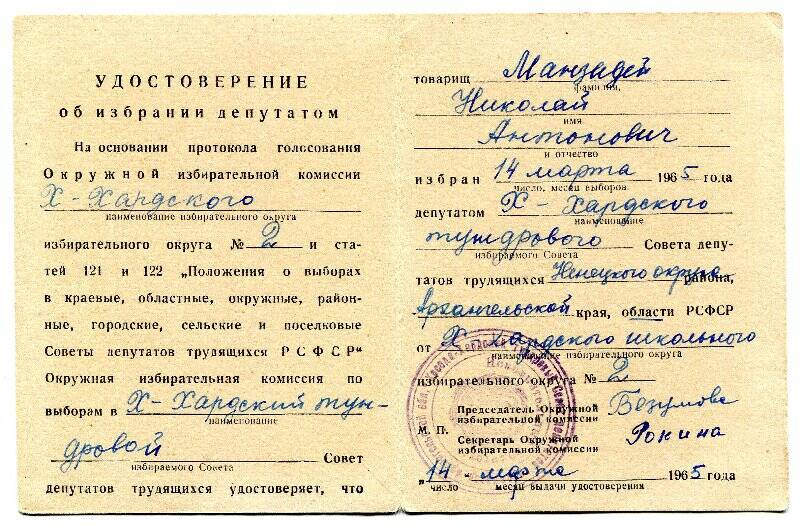 УДОСТОВЕРЕНИЕ
об избрании депутатом
На основании протокола голосования
Окружной избирательной комиссии
Х-Хардского
наименование избирательного округа
избирательного округа № 2 и ста-
тей 121 и 122 „Положения о выборах
в краевые, областные, окружные, район-
ные, городские, сельские и поселковые
Советы депутатов трудящихся РСФСР“
Окружная избирательная комиссия по
выборам в Х-Хардский тун-
наименование
дровой Совет
избираемого Совета
депутатов трудящихся удостоверяет, что
товарищ Манзадей
фамилия,
Николай
имя
Антонович
и отчество
избран 14 марта 1965 года
число, месяц выборов
депутатом Х-Хардского
наименование
тундрового Совета депу-
избираемого Совета
татов трудящихся Ненецкого округа района,
Архангельской края, области РСФСР
от Х-Хардского школьного
наименование избирательного округа
избирательного округа № 2
Председатель Окружной
избирательной комиссии
М. П.
Секретарь Окружной
избирательной комиссии
Рокина
„14 - марта 1965 года
число месяц выдачи удостоверения